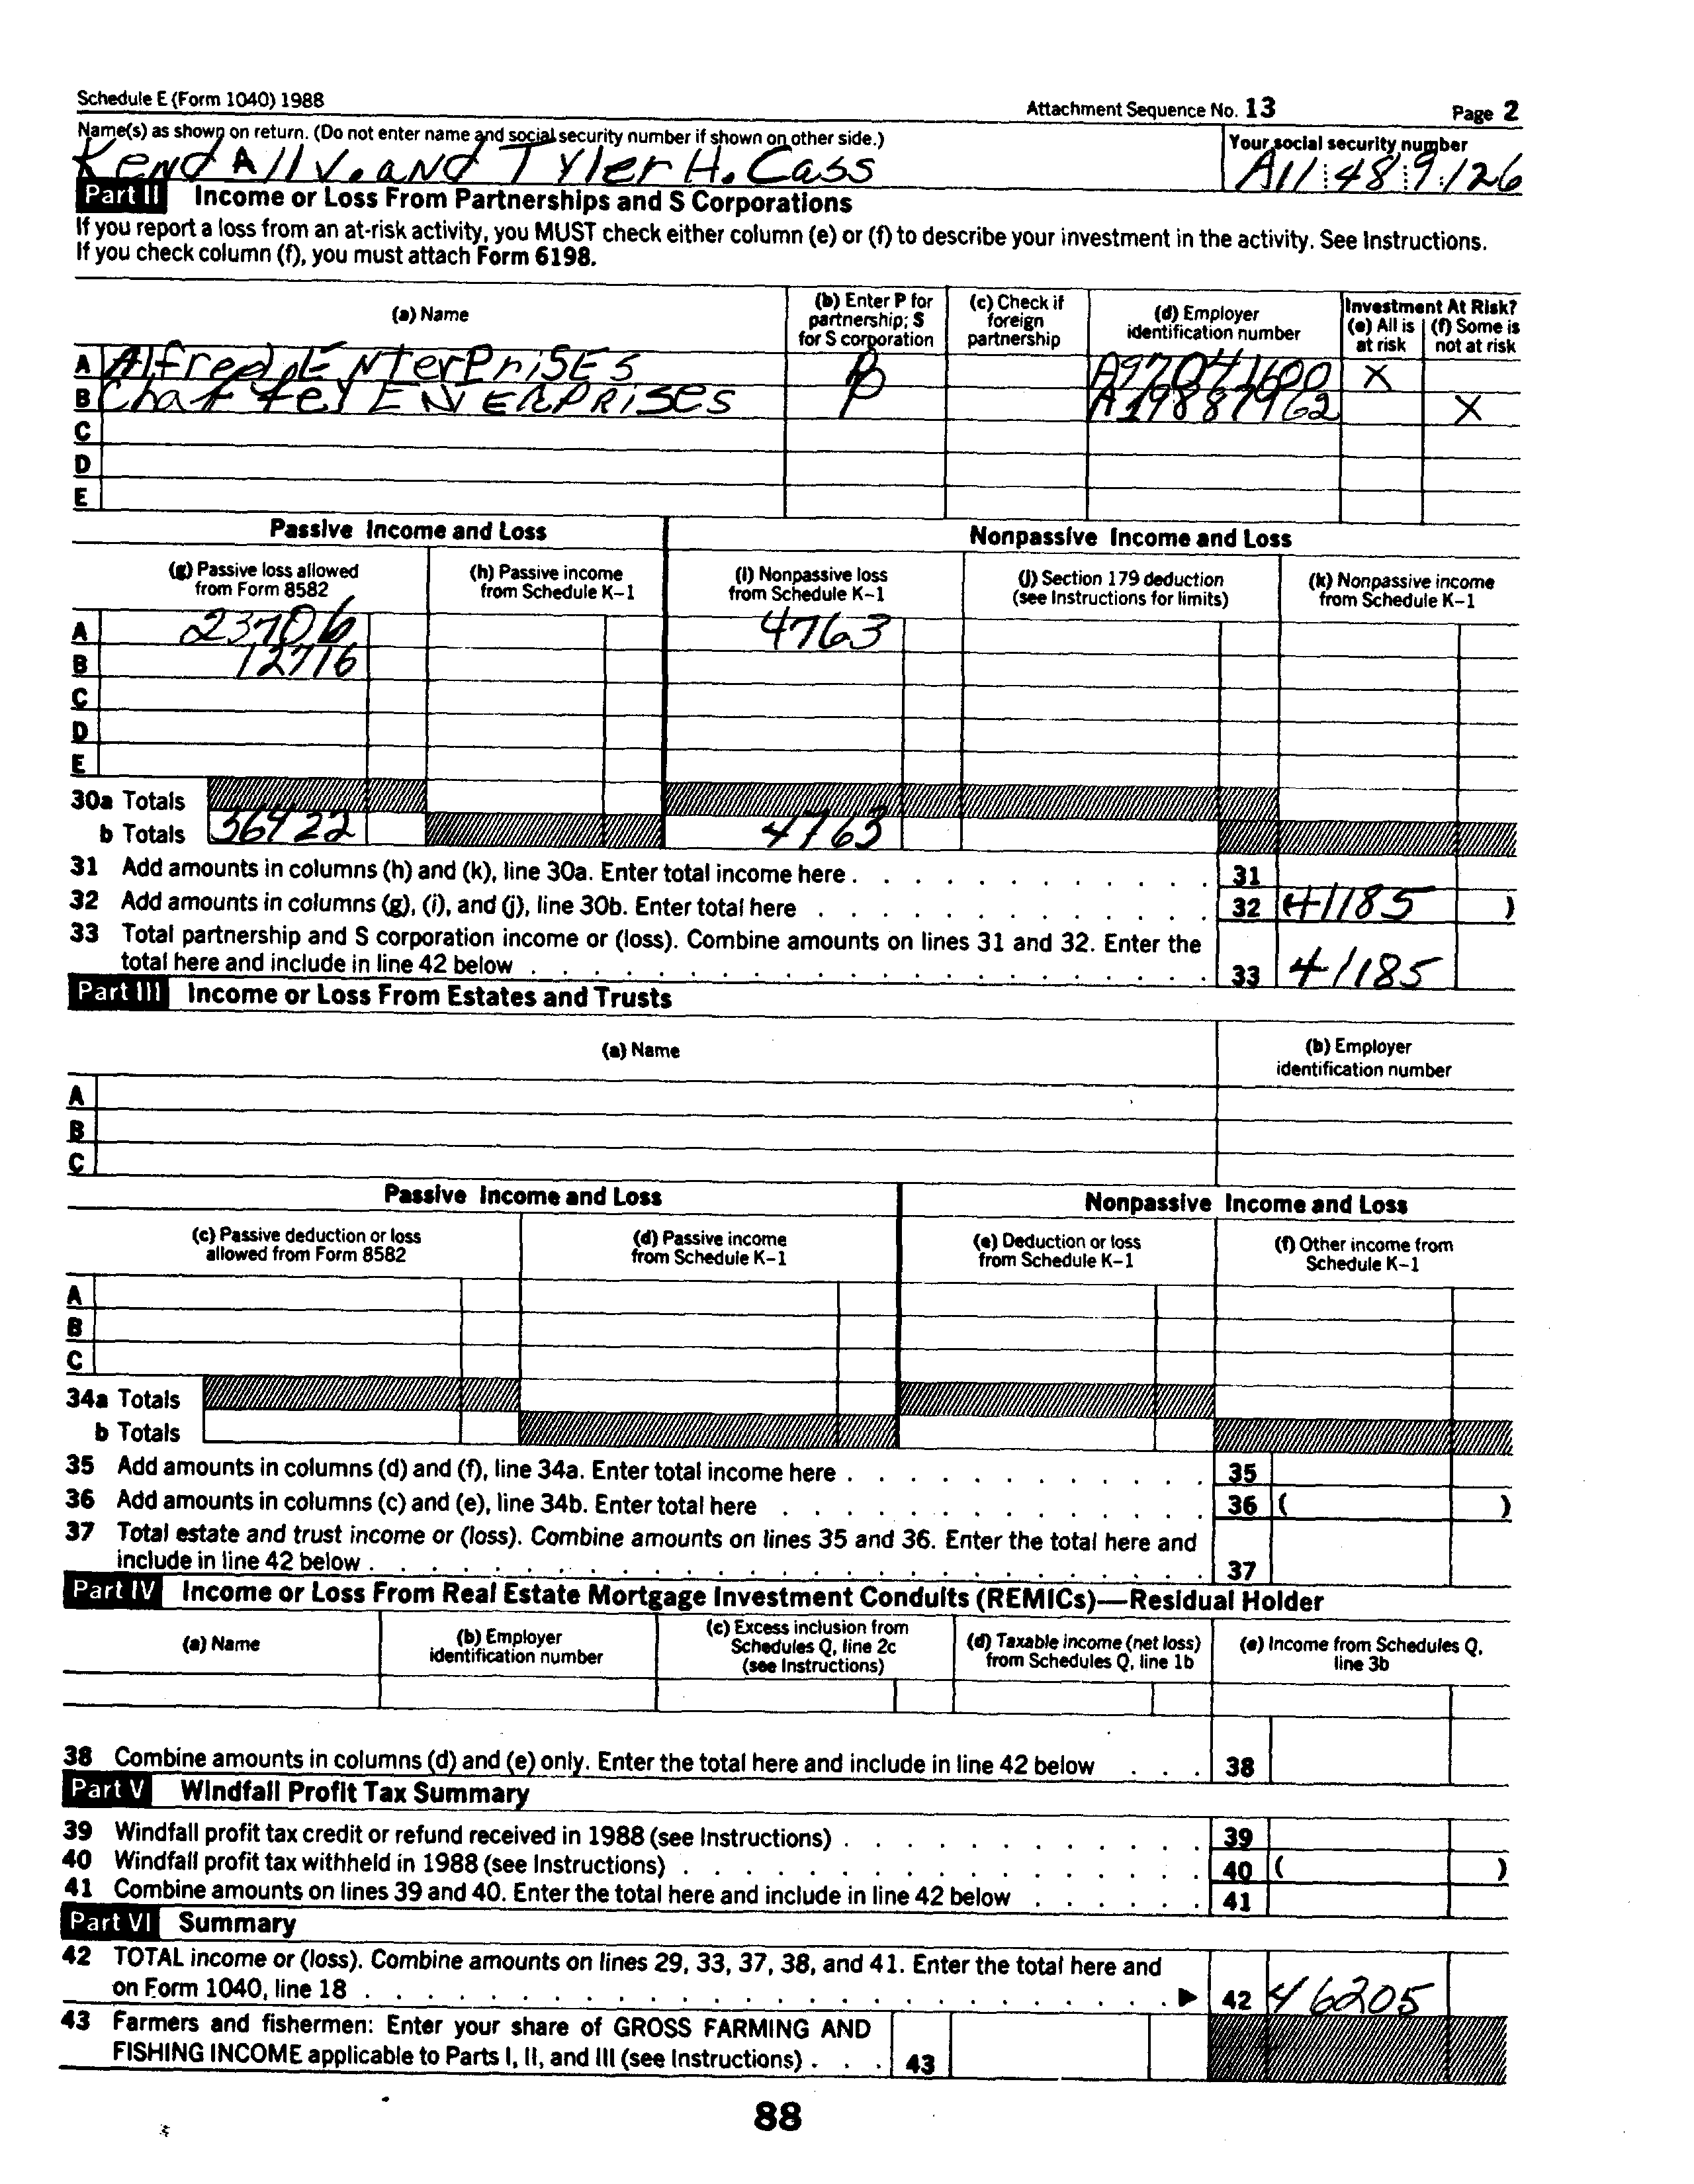 Schedule E (Form 1040) 1988 Attachment Sequence No. 13 Page 2
Name(s) as shown on return. (Do not enter name and social security number if shown on other side.) Your social security number
Kendall V. and Tyler H. Cass A11 48 9126
Part II Income or Loss From Partnerships and S Corporations
If you report a loss from an at-risk activity, you MUST check either column (e) or (f) to describe your investment in the activity. See Instructions.
If you check column (f), you must attach Form 6198.
(a) Name (b) Enter P for partnership; S for S corporation (c) Check if foreign partnership (d) Employer identification number Investment At Risk? (e) All is at risk (f) Some is not at risk
A Alfred ENTerPriSES P A97041600 X
B ENERPRises P A19887962 X
C
D
E
Passive Income and Loss Nonpassive Income and Loss
(g) Passive loss allowed from Form 8582 (h) Passive income from Schedule K-1 (i) Nonpassive loss from Schedule K-1 (j) Section 179 deduction (see Instructions for limits) (k) Nonpassive income from Schedule K-1
A 23706 4763
B 12716
C
D
E
30a Totals
b Totals 36422 4763
31 Add amounts in columns (h) and (k), line 30a. Enter total income here 31
32 Add amounts in columns (g), (i), and (j), line 30b. Enter total here 32 (41185 )
33 Total partnership and S corporation income or (loss). Combine amounts on lines 31 and 32. Enter the
total here and include in line 42 below 33 41185
Part III Income or Loss From Estates and Trusts
(a) Name (b) Employer identification number
A
B
C
Passive Income and Loss Nonpassive Income and Loss
(c) Passive deduction or loss allowed from Form 8582 (d) Passive income from Schedule K-1 (e) Deduction or loss from Schedule K-1 (f) Other income from Schedule K-1
A
B
C
34a Totals
b Totals
35 Add amounts in columns (d) and (f), line 34a. Enter total income here 35
36 Add amounts in columns (c) and (e), line 34b. Enter total here 36 ( )
37 Total estate and trust income or (loss). Combine amounts on lines 35 and 36. Enter the total here and
include in line 42 below 37
Part IV Income or Loss From Real Estate Mortgage Investment Conduits (REMICs)—Residual Holder
(a) Name (b) Employer identification number (c) Excess inclusion from Schedules Q, line 2c (see Instructions) (d) Taxable income (net loss) from Schedules Q, line 1b (e) Income from Schedules Q, line 3b
38 Combine amounts in columns (d) and (e) only. Enter the total here and include in line 42 below 38
Part V Windfall Profit Tax Summary
39 Windfall profit tax credit or refund received in 1988 (see Instructions) 39
40 Windfall profit tax withheld in 1988 (see Instructions) 40 ( )
41 Combine amounts on lines 39 and 40. Enter the total here and include in line 42 below 41
Part VI Summary
42 TOTAL income or (loss). Combine amounts on lines 29, 33, 37, 38, and 41. Enter the total here and
on Form 1040, line 18 ▶ 42 46205
43 Farmers and fishermen: Enter your share of GROSS FARMING AND
FISHING INCOME applicable to Parts I, II, and III (see Instructions) 43
88